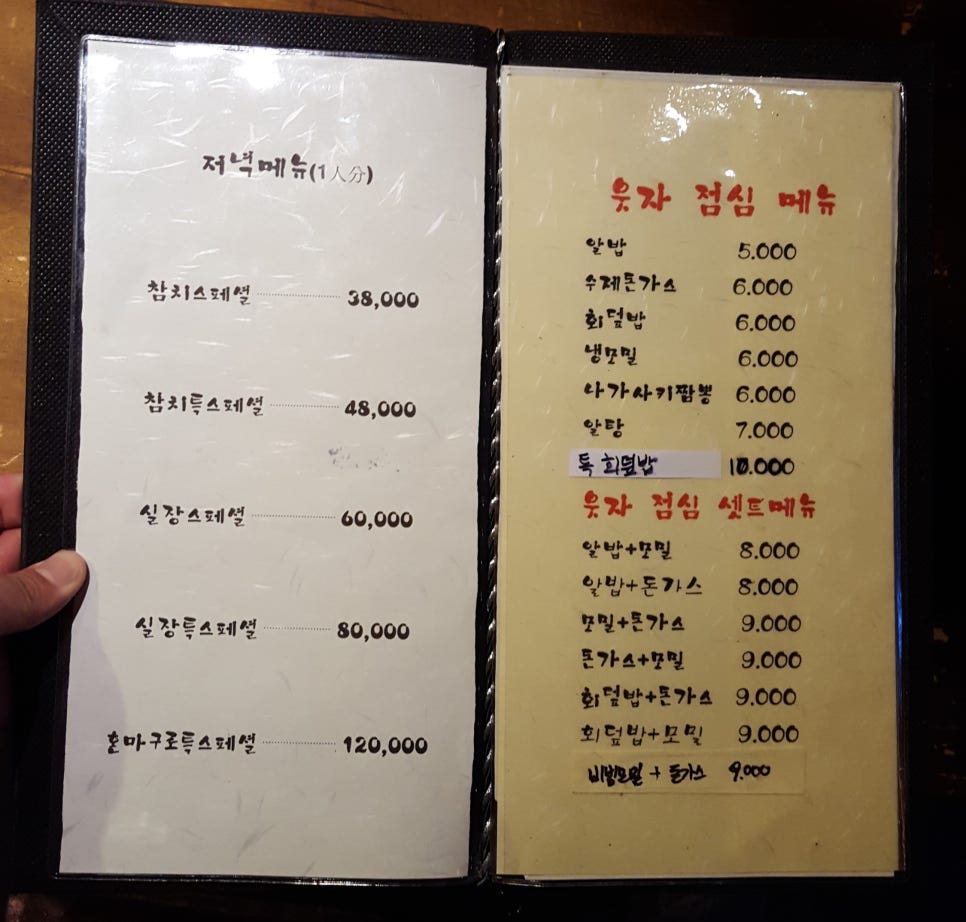 저녁메뉴(1人分)
참치스페셜 38,000
참치특스페셜 48,000
실장스페셜 60,000
실장특스페셜 80,000
혼마구로특스페셜 120,000
웃자 점심 메뉴
알밥 5.000
수제돈가스 6.000
회덮밥 6.000
냉모밀 6.000
나가사키짬뽕 6.000
알탕 7.000
특 회덮밥 10.000
웃자 점심 셋트메뉴
알밥+모밀 8.000
알밥+돈가스 8.000
모밀+돈가스 9.000
돈가스+모밀 9.000
회덮밥+돈가스 9.000
회덮밥+모밀 9.000
비빔모밀 + 돈가스 9.000